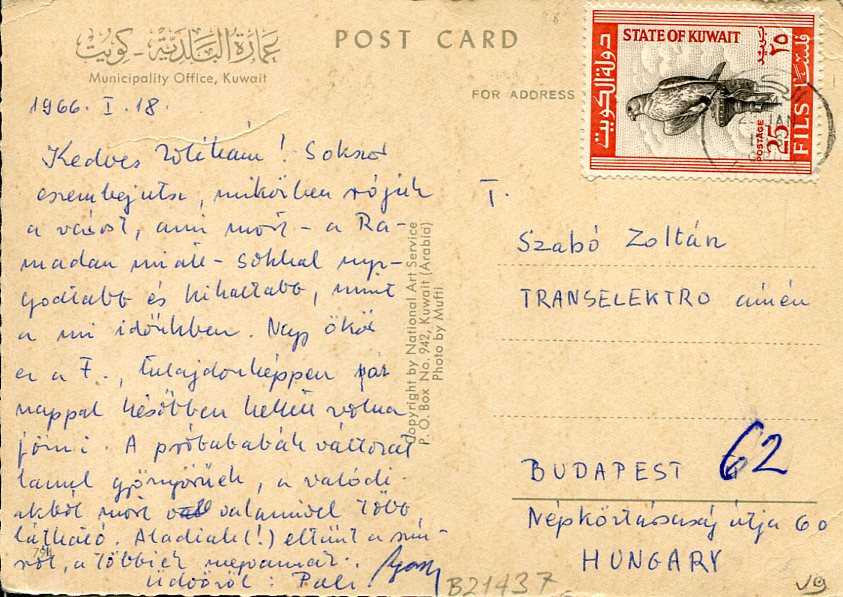 عمارة البلدية - كويت
Municipality Office, Kuwait
POST CARD
FOR ADDRESS
STATE OF KUWAIT
دولة الكويت
POSTAGE
25
FILS
بريد
٢٥
فلسا
JAN
1966. I. 18.
Kedves Zolikám! Sokszor
eszembejutsz, miközben rójuk
a várost, ami most - a Ra-
madán miatt - sokkal nyu-
godtabb és kihaltabb, mint
a mi időnkben. Nagy ökör
ez a F., tulajdonképpen pár
nappal később kellett volna
jönni. A próbababák változat-
lanul gyönyörűek, a valódi-
akból most valamivel több
látható. Aladiah(!) eltűnt a szín-
ről, a többiek ugyanaz.
Üdvözöl: Pali.
Copyright by National Art Service
P. O. Box No. 942, Kuwait (Arabia)
Photo by Mufti
T.
Szabó Zoltán
TRANSELEKTRO címén
BUDAPEST 62
Népköztársaság útja 60
HUNGARY
B21437